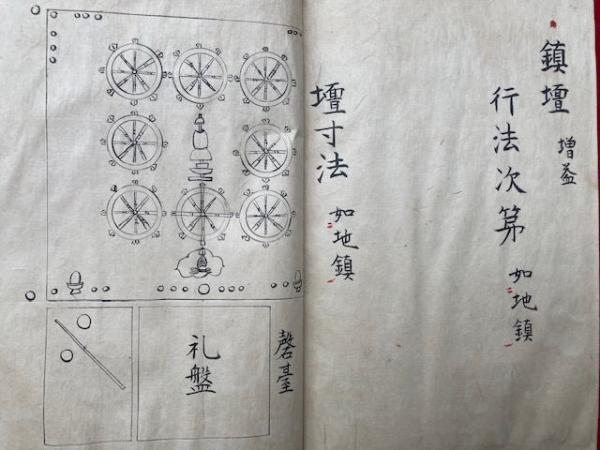 鎮壇 増益
行法次第 如地鎮
壇寸法 如地鎮
磬臺
礼盤